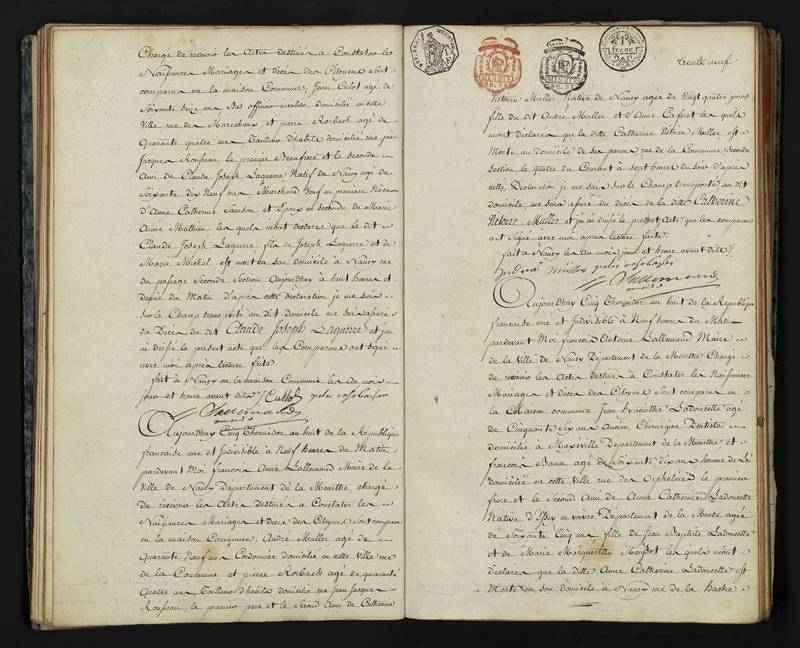 Chargé de recevoir les Actes destinés à Constater les
Naissances Mariages et décès des Citoyens Sont
comparus en la maison Commune, Jean Culot agé de
Soixante Seize ans Bas officier invalide domicilié en cette
Ville rue des Marechaux et pierre Rorbach agé de
Quarante quatre ans Tailleur d'habits domicilié rue jean
Jacques Rousseau le premier Beaufrere et le Second
Ami de Claude Joseph Laguerre Natif de Nancy agé de
Soixante dix Neuf ans, Marchand Veuf en première Nôces
d'Anne Catherine Sauson et Epoux en seconde de Marie
Anne Mathieu les quels m'ont declarés que le dit
Claude Joseph Laguerre fils de Joseph Laguerre et de
Marie Michel est mort en son domicile à Nancy rue
du passage Seconde Section Aujourdhuy à huit heures et
demie du Matin d'après cette déclaration je me suis
Sur le Champ transporté au dit domicile me suis assuré
du Décès du dit Claude Joseph Laguerre et j'ai
ai dressé le présent acte que les Comparans ont signé
avec moi après lecture faite.
fait à Nancy en la maison Commune les An mois
jour et heure avant dits / Cullot peter rohrbacher
Lallemand
Aujourdhuy Cinq Thermidor an huit de la République
francaise une et Indivisible à Neuf heures du Matin
pardevant Moi francois Antoine Lallemand Maire de la
Ville de Nancy Departement de la Meurthe chargé
de recevoir les Actes destinés à Constater les
Naissances Mariages et décès des Citoyens Sont comparus
en la maison Commune André Muller agé de
Quarante Neuf ans Cordonnier domicilié en cette Ville rue
de la Commune et pierre Rorbach agé de quarante
Quatre ans, Tailleur d'habits domicilié rue Jean Jacques
Rousseau, le premier pere et le Second Ami de Catherine
trente neuf
MINUTE
MINUTE
Victoire Muller Native de Nancy agée de Vingt quatre
fille du dit André Muller et d'Anne les quels
m'ont déclarés que la ditte Catherine Victoire Muller est
Morte au domicile de ses pere rue de la Commune Seconde
Section le quatre du Courant à sept heures du soir d'après
cette Déclaration je me suis sur le Champ transporté au dit
domicile me suis assuré du décès de la ditte Catherine
Victoire Muller et j'ai dressé le présent Acte que les comparans
ont Signé avec moi après lecture faite.
fait à Nancy les An mois jour et heure avant dits /
Andreas Müller peter rohrbacher
Lallemand
Aujourdhuy Cinq Thermidor an huit de la République
francaise une et Indivisible à Neuf heures du Matin
pardevant Moi francois Antoine Lallemand Maire
de la Ville de Nancy Département de la Meurthe Chargé
de recevoir les Actes destinés à Constater les Naissances
Mariages et décès des Citoyens Sont comparus en
la Maison commune Jean hyacinthe Ladoucette agé
de Cinquante Six ans Ancien Chirurgien Dentiste
domicilié à Maxéville Departement de la Meurthe et
francois Bana agé de Soixante dix ans homme de Loi
domicilié en cette Ville rue des Orphelines, le premier
frere et le Second Ami de Anne Catherine Ladoucette
Native d'Essey en voivre Departement de la Meuse agée
de Soixante Cinq ans fille de Jean Baptiste Ladoucette
et de Marie Margueritte les quels m'ont
declarés que la ditte Anne Catherine Ladoucette est
Morte en son domicile à Nancy rue de la hache